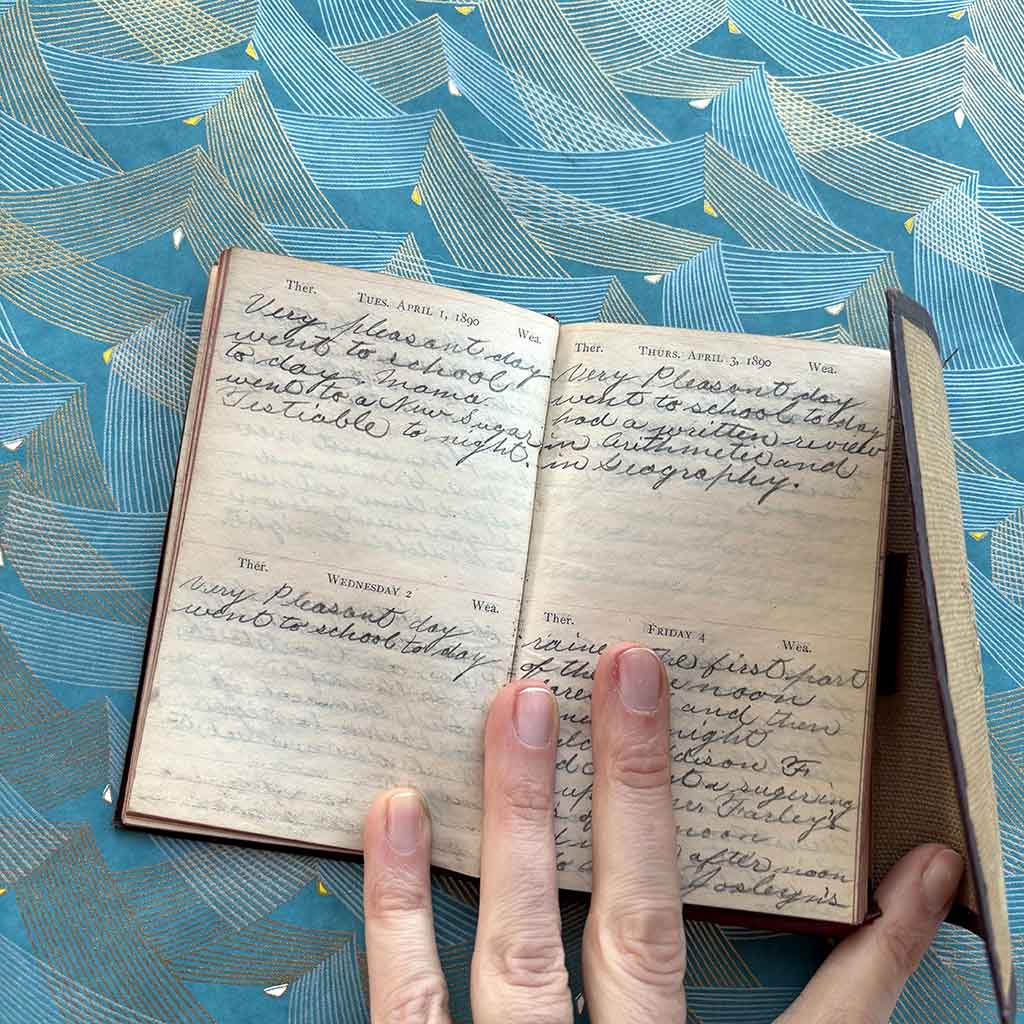 Ther. TUES. APRIL 1, 1890 Wea.
Very pleasant day
went to school
to day. Mama
went to a New Sugar
Festiable to night.
Ther. WEDNESDAY 2 Wea.
Very Pleasant day
went to school to day
Ther. THURS. APRIL 3, 1890 Wea.
Very Pleasant day
went to school to day
had a written review
in Arithmetic and
in Geography.
Ther. FRIDAY 4 Wea.
the first part
of noon
and then
night
a sugering
up Farley's
noon
after noon
Josleyn's